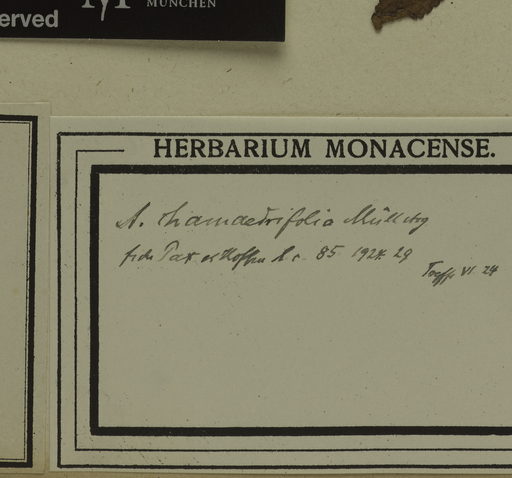 erved
M
MÜNCHEN
HERBARIUM MONACENSE.
A. chamaedrifolia Müll Arg
fide Pax et Hoffm l. c. 85 1924. 29
VI 24